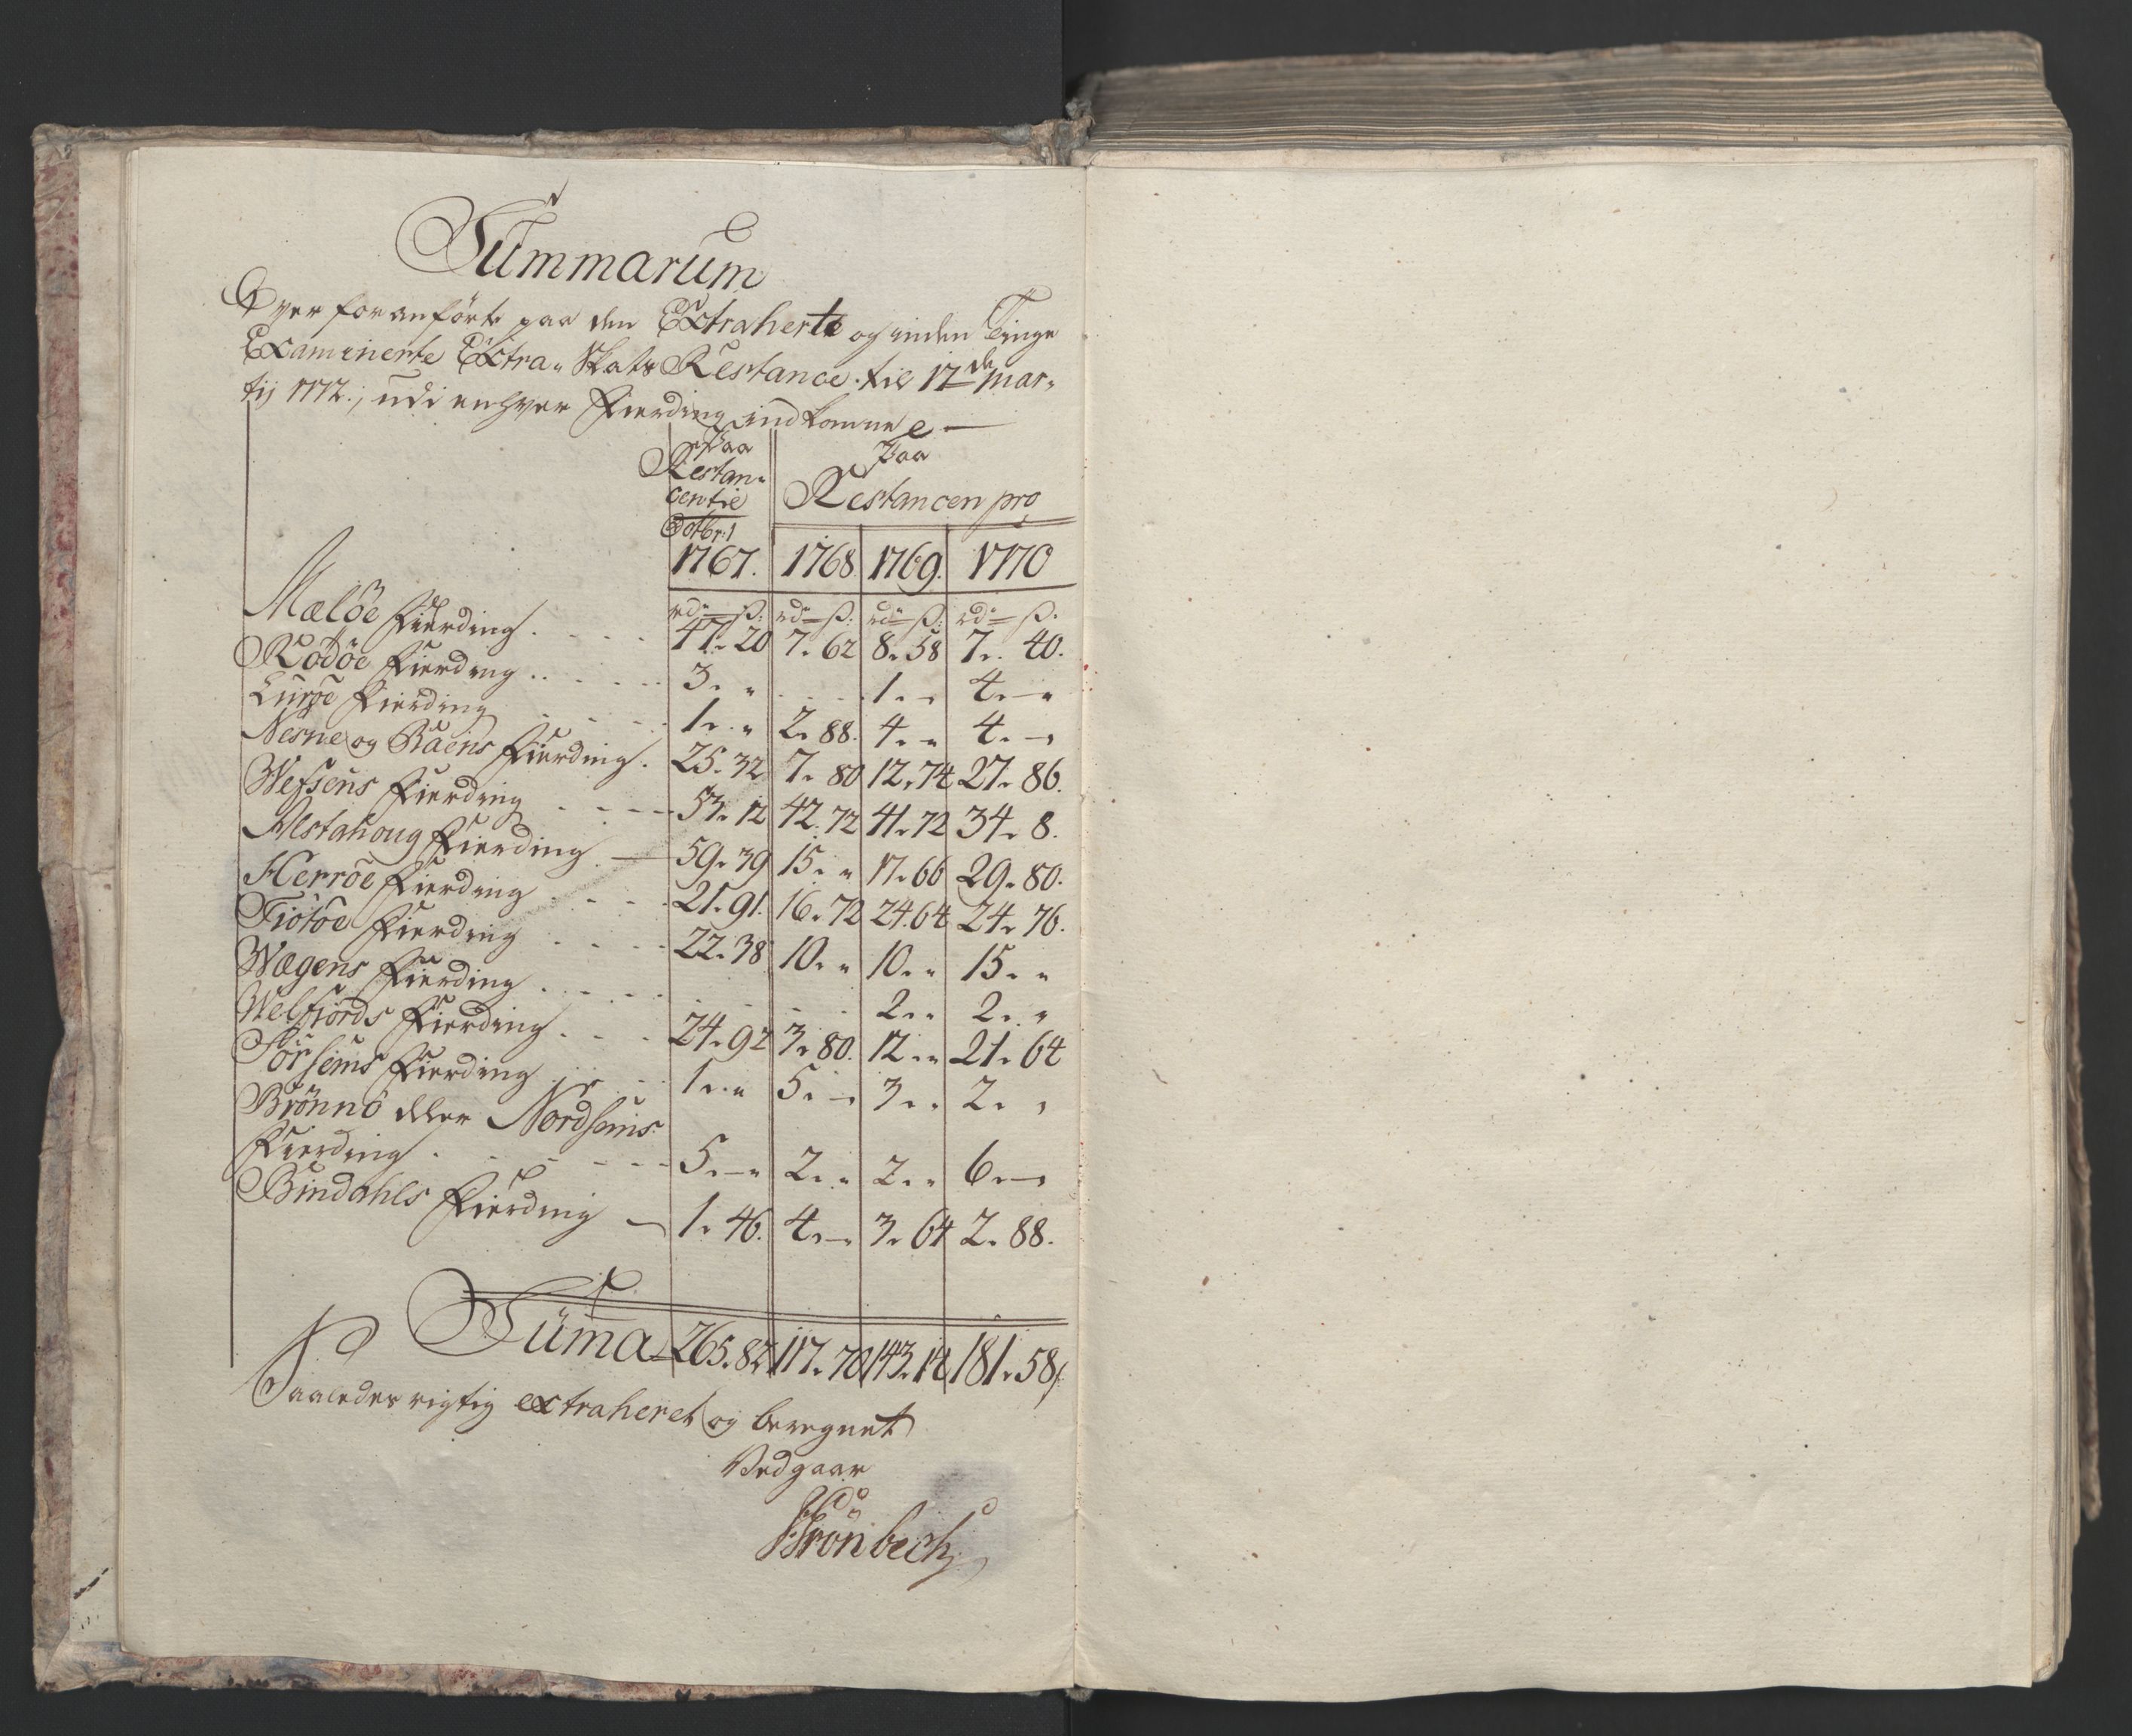 Summarum
Over foranförte paa den Extraherte og inden Tinge
Examinerte Extra- Skats Restance til 17de Mar-
tij 1772, udi enhver Fierding indkomne
Paa
Restan-
centie
Octbr:
Paa
Restancen pro
1767. 1768. 1769. 1770
rdr ß: rdr ß: rdr ß: rdr ß.
Meløe Fierding . . . . 47. 20 7. 62 8. 58 7. 40.
Rödöe Fierding . . . . 3. " . . . . 1. - 4. - "
Luröe Fierding . . . . 1. " 2. 88. 4. " 4. -
Nesne og Raens Fierding . 25. 32 7. 80 12. 74 27. 86.
Wefsens Fierding . . . . 53. 12 42. 72 41. 72 34. 8.
Alstahoug Fierding — 59. 39 15. " 17. 66 29. 80.
Herröe Fierding . . . . 21. 91. 16. 72 24. 64 24. 76.
Tiötöe Fierding . . . . 22. 38 10. " 10. " 15. "
Wægens Fierding . . . . . . . . 2. " 2. "
Welfiords Fierding . . . 24. 92 3. 80. 12. " 21. 64
Sörsems Fierding . . . . 1. " 5. - 3. " 2. "
Brönnö eller Nordsems
Fierding . . . . . 5. - " 2. " 2. " 6. -
Bindahls Fierding — 1. 46. 4. - 3. 64 2. 88.
Suma 265. 82 117. 70 143. 14 181. 58
Saaledes rigtig extraheret og beregnet
Vedgaar
Grönbech